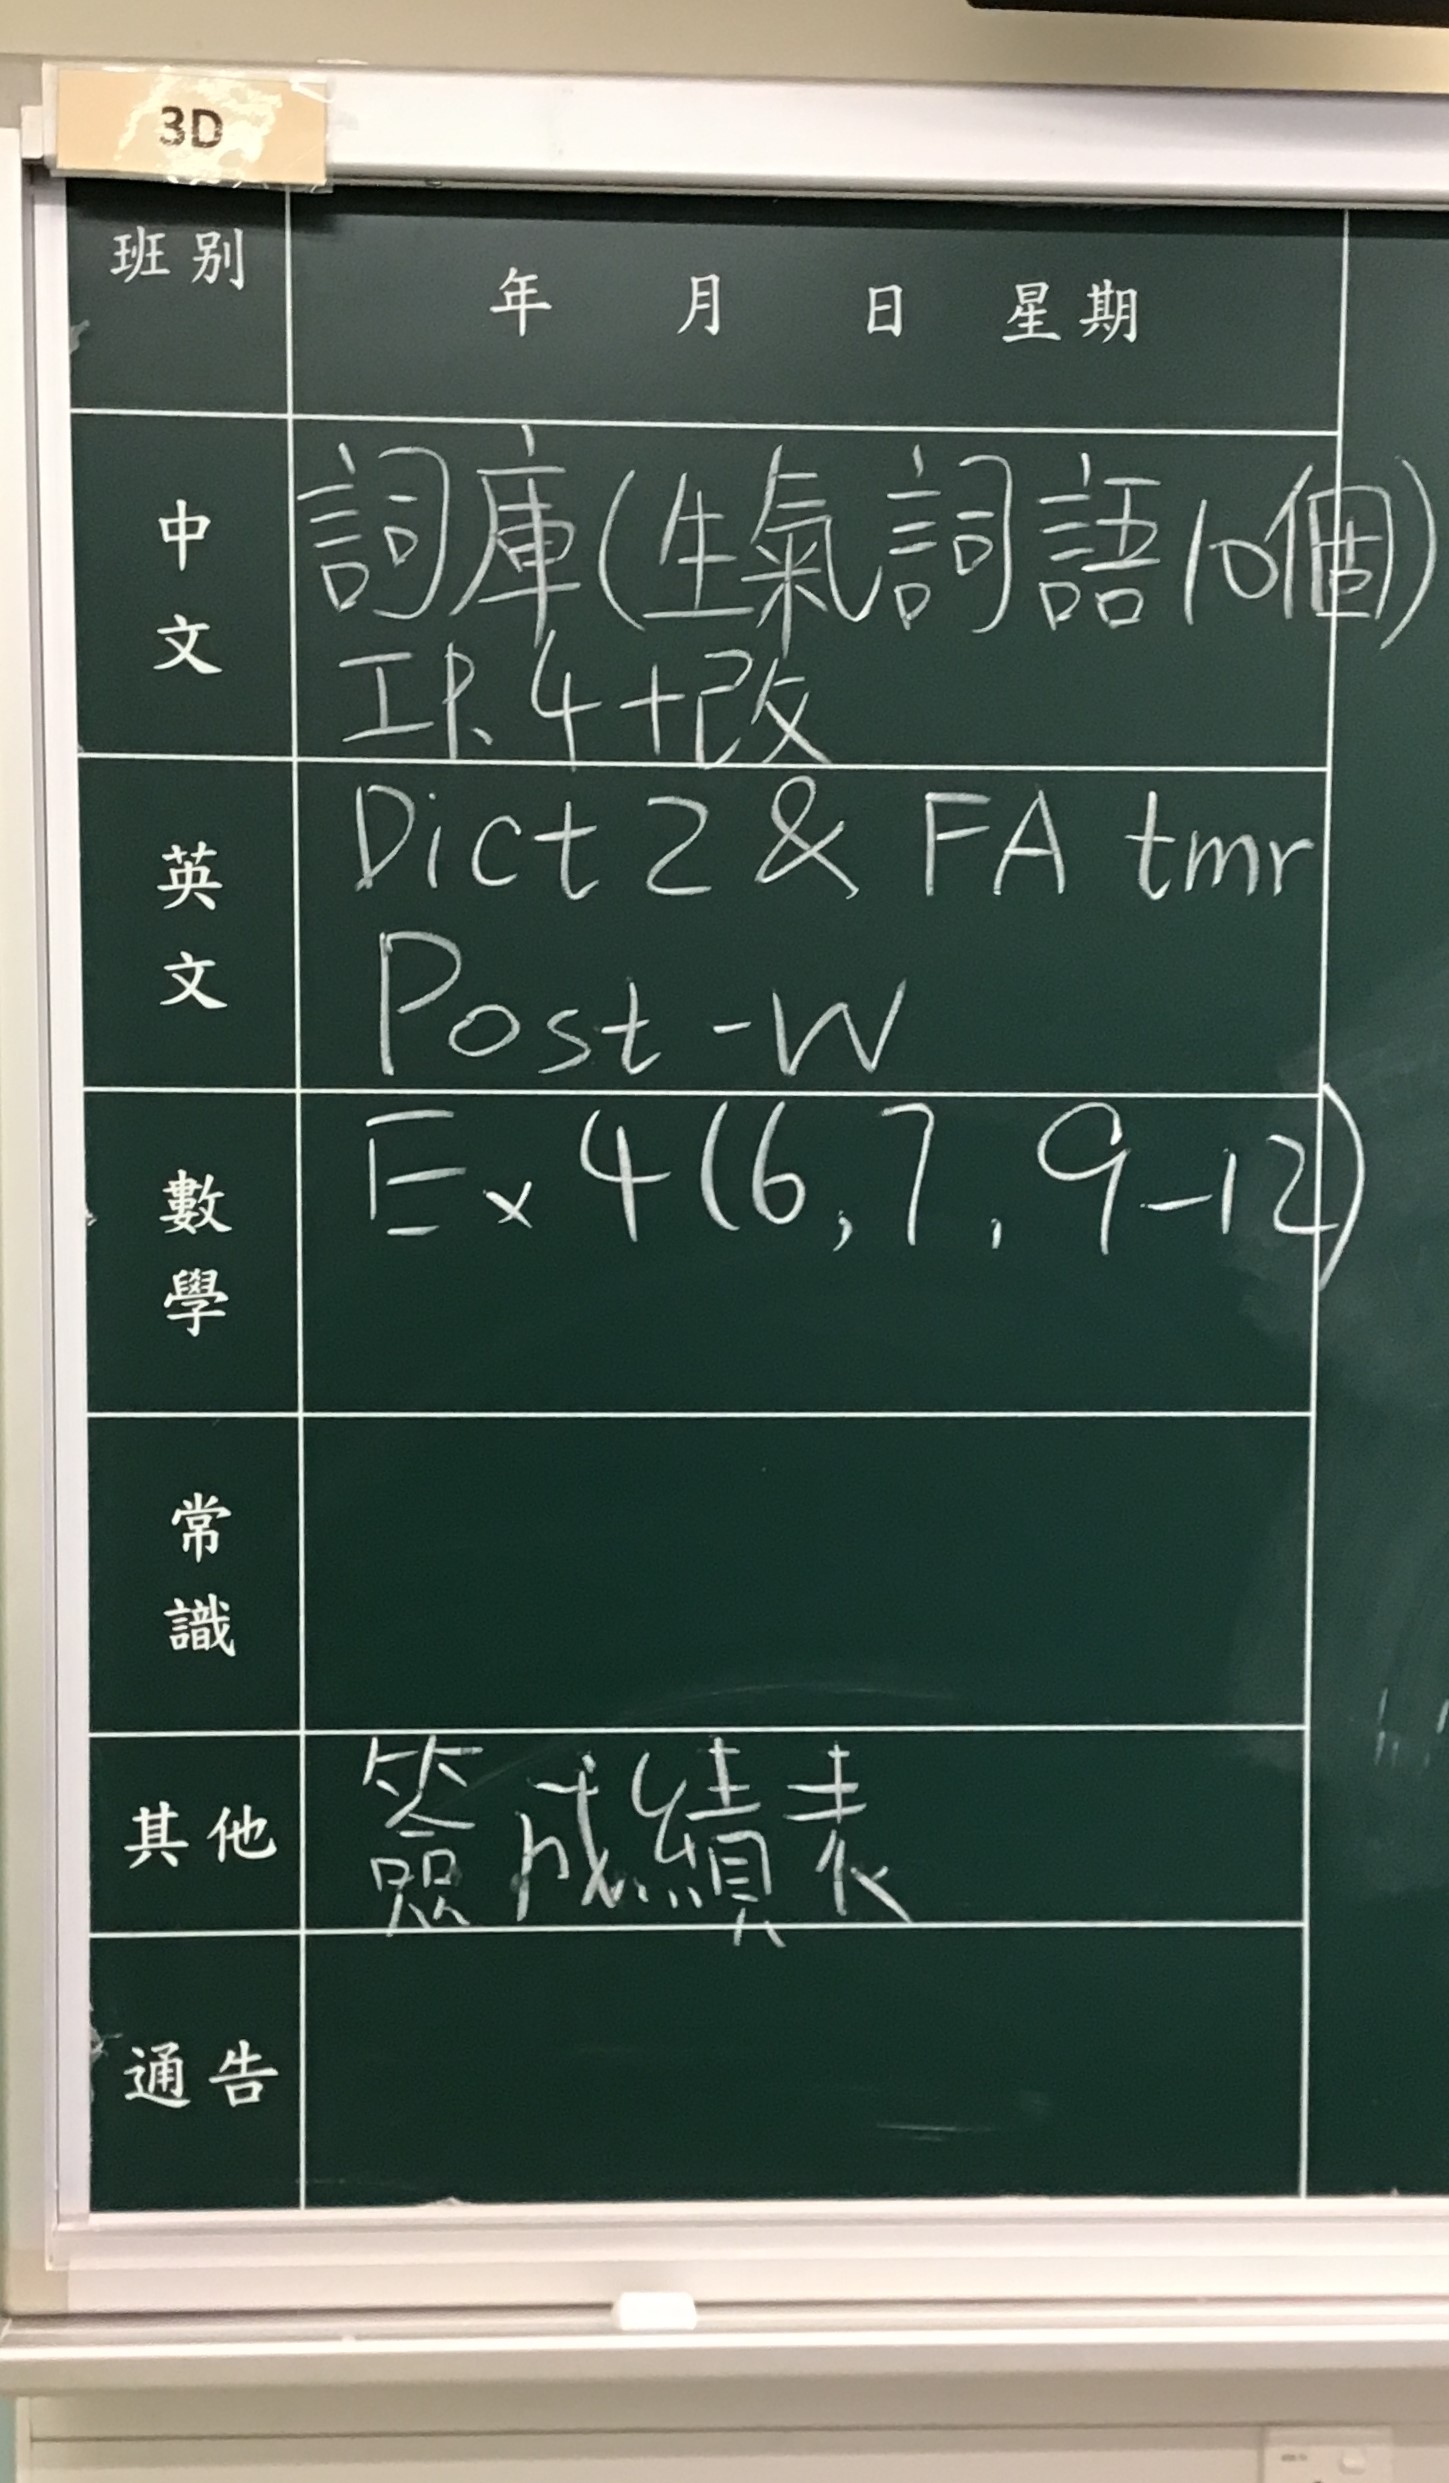 3D
班別
年 月 日 星期
中文
詞庫(生氣詞語10個)
工P.4+改
英文
Dict 2 & FA tmr
Post-W
數學
Ex 4 (6, 7, 9-12)
常識
其他
簽成績表
通告